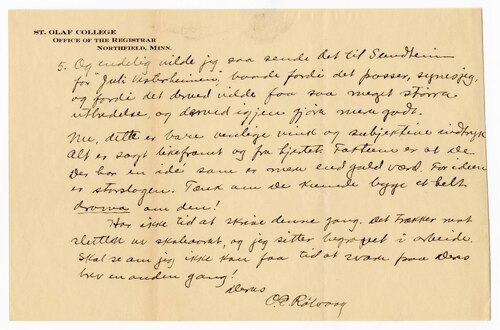 ST. OLAF COLLEGE
OFFICE OF THE REGISTRAR
NORTHFIELD, MINN.
5. Og endelig vilde jeg saa sende det til Sundheim
for "Jul i Vesterheimen", baade fordi det passer, synes jeg,
og fordi det derved vilde faa saa meget større
utbredelse, og derved igjen gjøre mere godt.
Nu, dette er bare venlige vink og subjektive indtryk
Alt er sagt likeframt og fra hjertet. Faktum er at De
Der har en idé som er mere end guld værd. For ideen
er storslagen. Tænk om De kunde bygge et helt
drama om den!
Har ikke tid at skrive denne gang. Det trækker mot
slutten av skoleaaret, og jeg sitter begravet i arbeide.
Skal se om jeg ikke kan faa tid at svare paa Deres
brev en anden gang!
Deres
O. E. Rölvaag